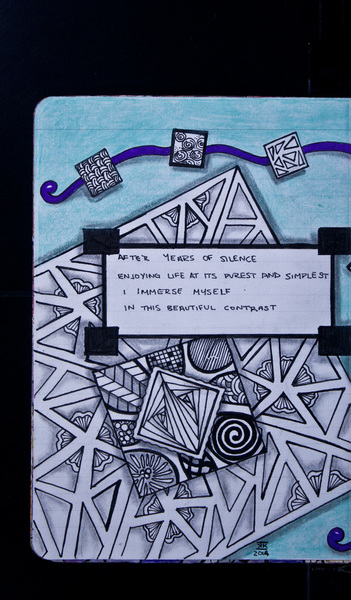 AFTER YEARS OF SILENCE
ENJOYING LIFE AT ITS PUREST AND SIMPLEST
I IMMERSE MYSELF
IN THIS BEAUTIFUL CONTRAST